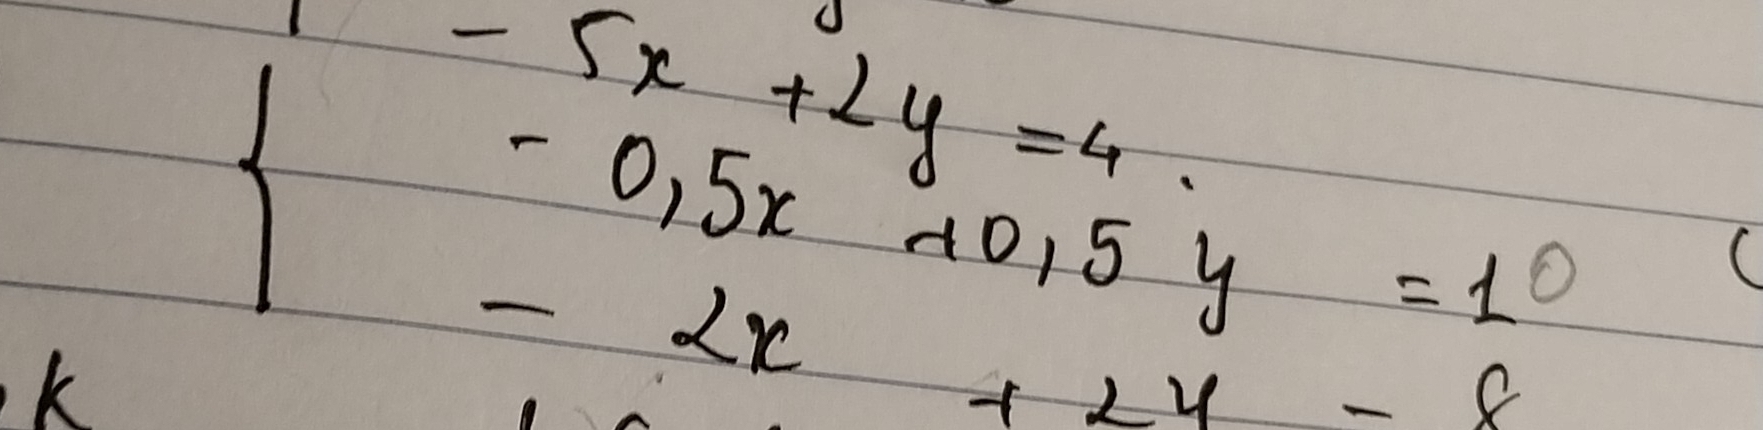 - 5x + 2y = 4.
- 0,5x + 0,5y = 10
- 2x + 2y = 8
k